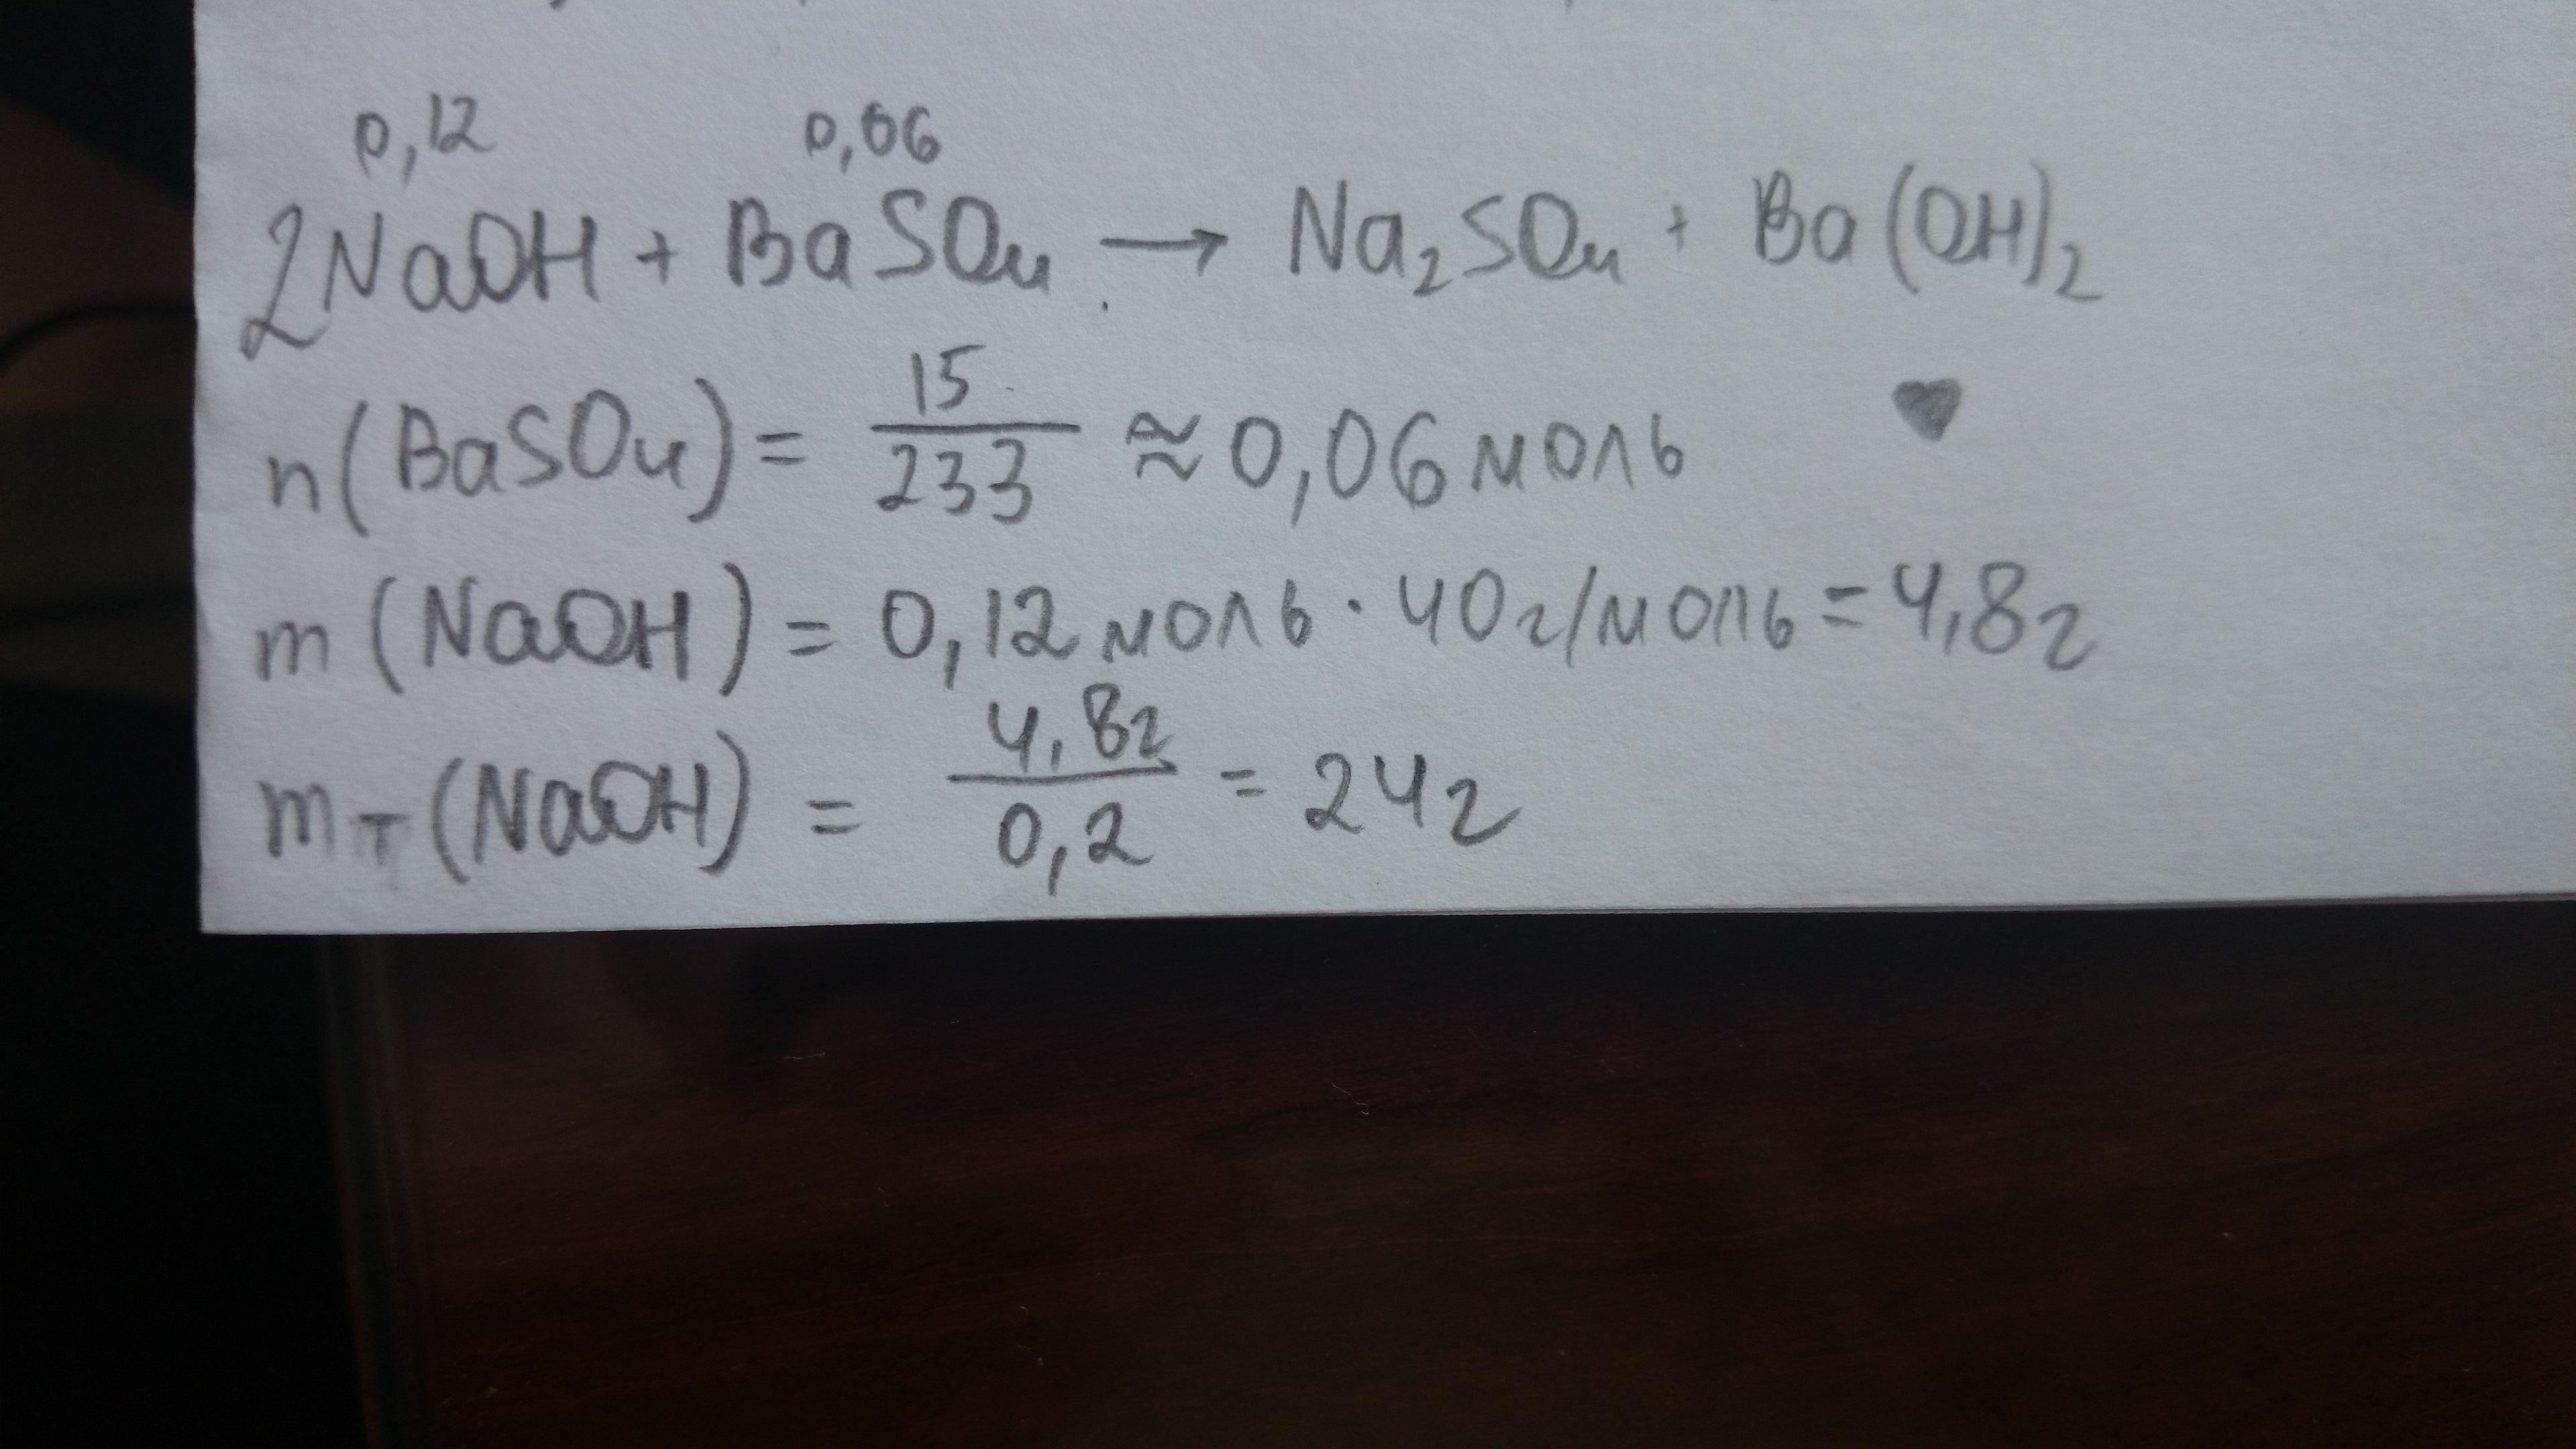 0,12 0,06
2NaOH + BaSO₄ → Na₂SO₄ + Ba(OH)₂
n(BaSO₄) = 15/233 ≈ 0,06 моль ♥
m(NaOH) = 0,12 моль · 40 г/моль = 4,8 г
mт(NaOH) = 4,8г/0,2 = 24 г